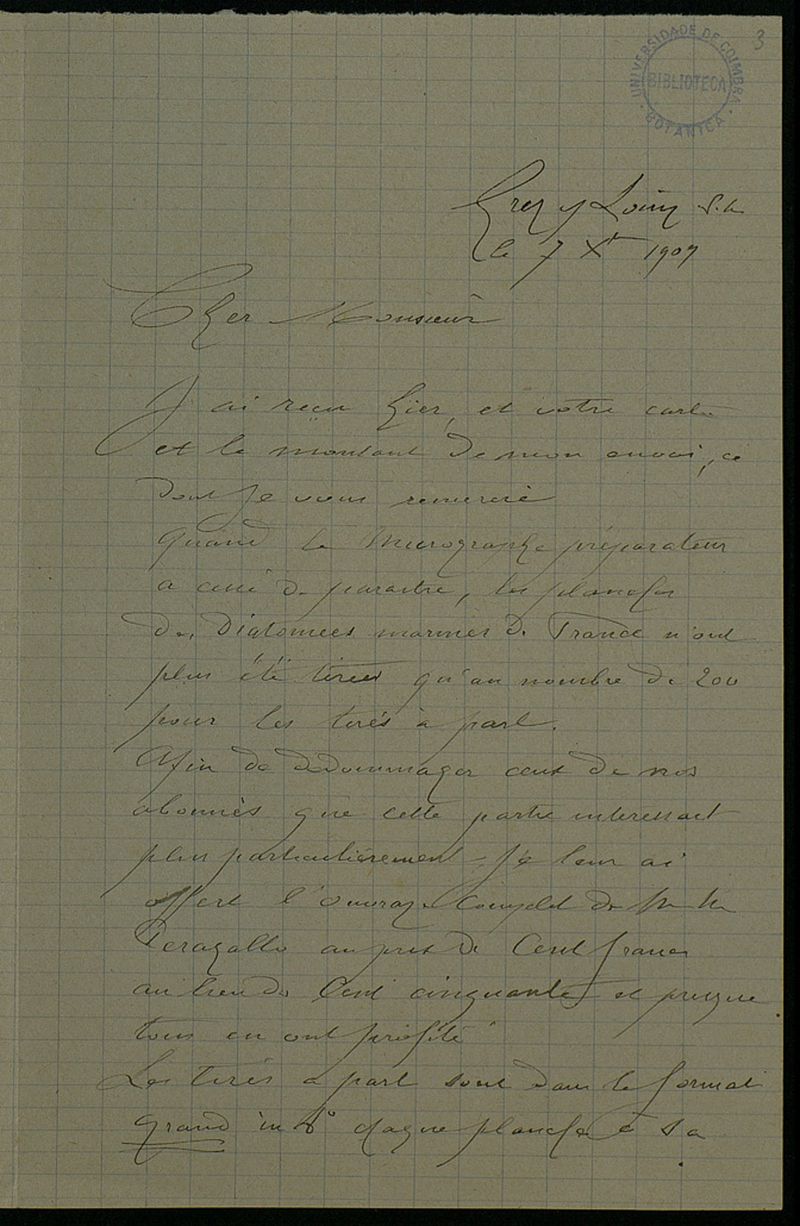 3
UNIVERSIDADE DE COIMBRA
BIBLIOTECA
BOTANICA
Grez s/ Loing S.M.
le 7 Xbre 1907
Cher Monsieur
J'ai reçu hier, et votre carte
et le montant de mon envoi, ce
dont je vous remercie
Quand le Micrographe préparateur
a cessé de paraitre, les planches
des Diatomées marines de France n'ont
plus été tirées qu'au nombre de 200
pour les tirés à part.
Afin de dédommager ceux de nos
abonnés que cette partie interessait
plus particulièrement je leur ai
offert l'ouvrage complet de M M
Peragallo au prix de Cent francs
au lieu de Cent cinquante et presque
tous en ont profité
Les tirés à part sont dans le format
grand in 8° chaque planche a sa